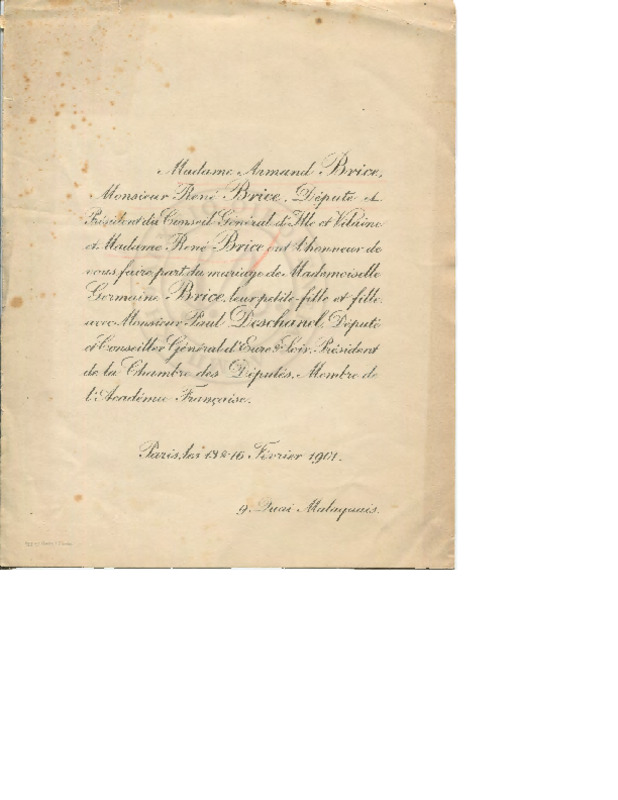 Madame Armand Brice,
Monsieur René Brice, Député et
Président du Conseil Général d'Ille et Vilaine
et Madame René Brice ont l'honneur de
vous faire part du mariage de Mademoiselle
Germaine Brice, leur petite-fille et fille,
avec Monsieur Paul Deschanel, Député
et Conseiller Général d'Eure & Loir, Président
de la Chambre des Députés, Membre de
l'Académie Française.
Paris, les 15 & 16 Février 1901.
9, Quai Malaquais.